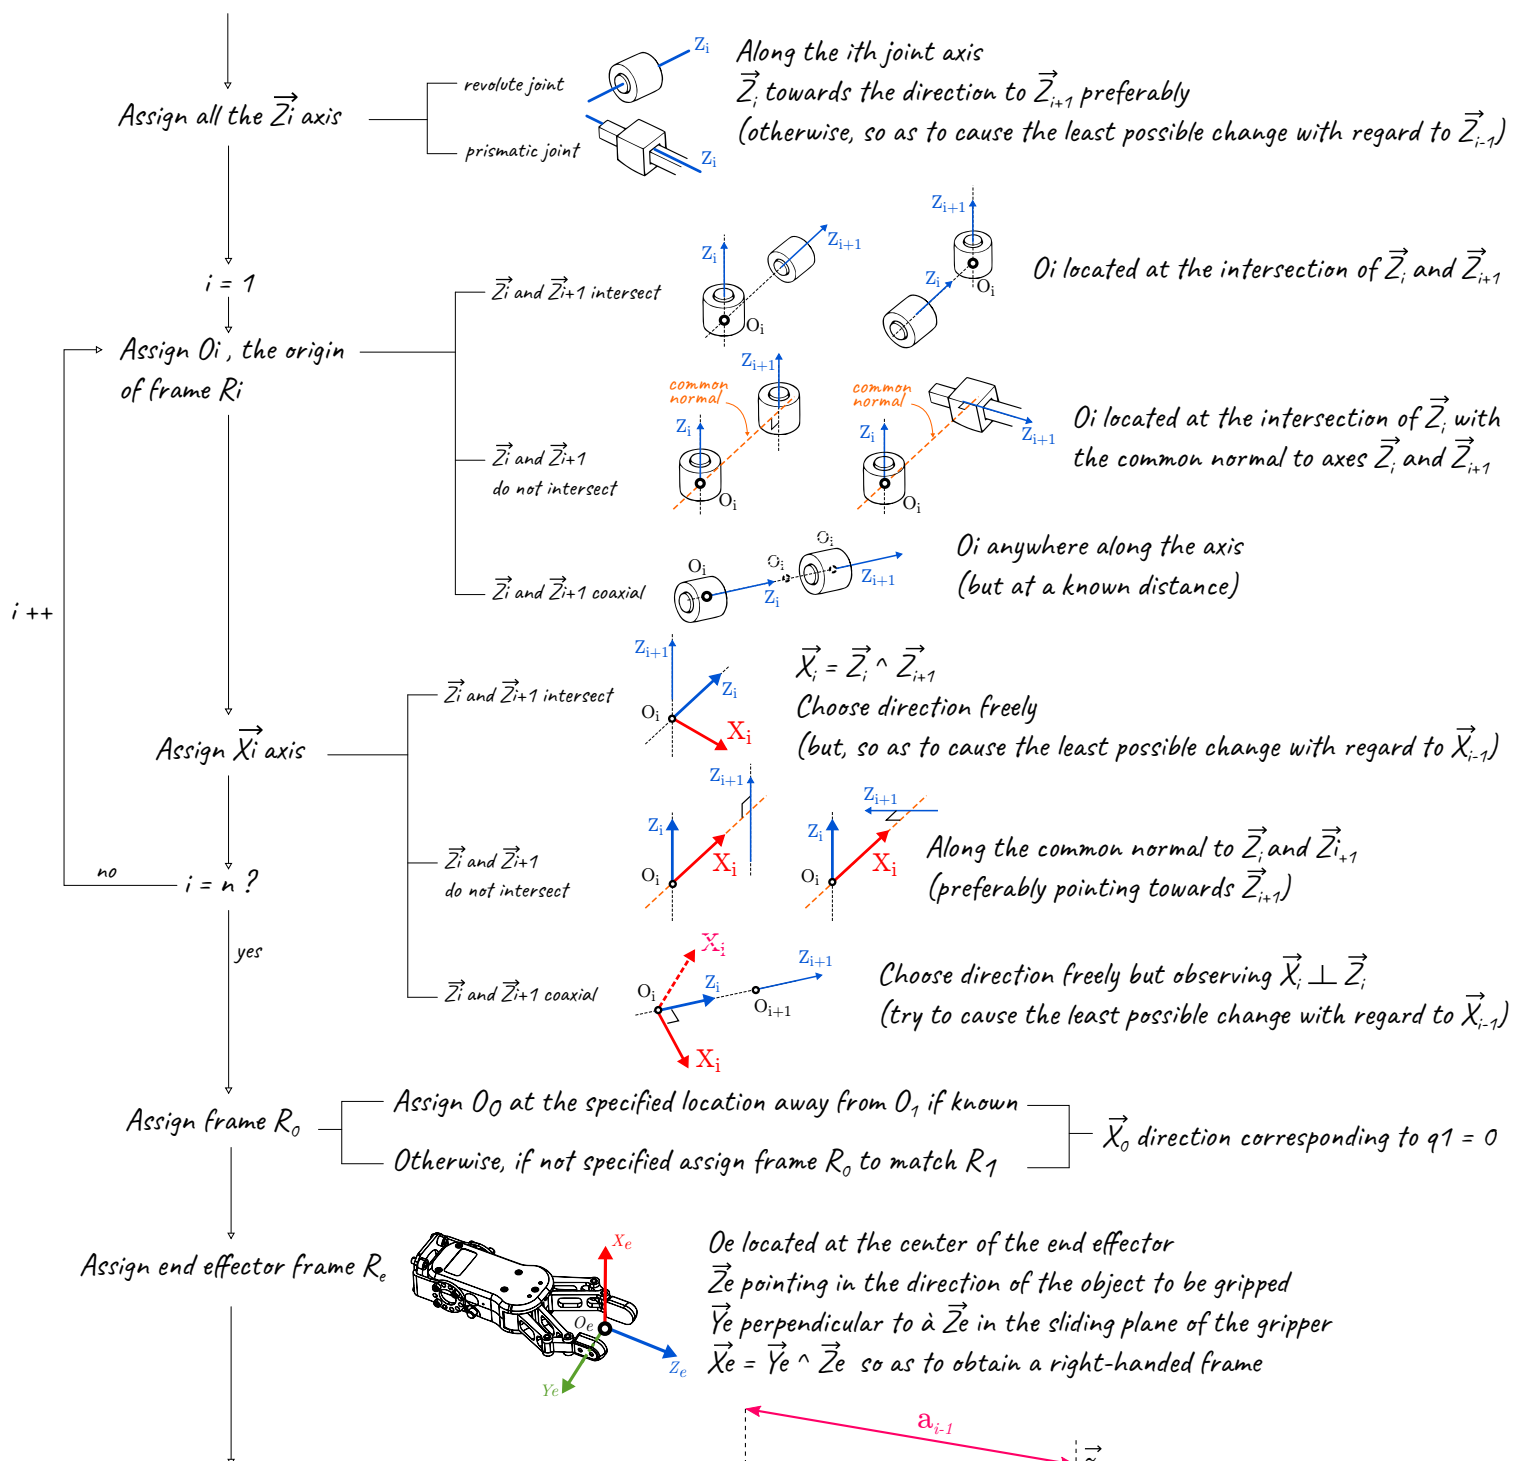 Assign all the Zi axis
revolute joint
prismatic joint
Zi
Zi
Along the ith joint axis
Zi towards the direction to Zi+1 preferably
(otherwise, so as to cause the least possible change with regard to Zi-1)
i = 1
Assign Oi , the origin
of frame Ri
Zi and Zi+1 intersect
Zi
Zi+1
Oi
Zi+1
Zi
Oi
Oi located at the intersection of Zi and Zi+1
Zi and Zi+1
do not intersect
common
normal
Zi+1
Zi
Oi
common
normal
Zi
Zi+1
Oi
Oi located at the intersection of Zi with
the common normal to axes Zi and Zi+1
Zi and Zi+1 coaxial
Oi
Oi
Oi
Zi
Zi+1
Oi anywhere along the axis
(but at a known distance)
i ++
Assign Xi axis
Zi and Zi+1 intersect
Zi+1
Zi
Oi
Xi
Xi = Zi ^ Zi+1
Choose direction freely
(but, so as to cause the least possible change with regard to Xi-1)
Zi and Zi+1
do not intersect
Zi+1
Zi
Xi
Oi
Zi+1
Zi
Xi
Oi
Along the common normal to Zi and Zi+1
(preferably pointing towards Zi+1)
no
i = n ?
yes
Zi and Zi+1 coaxial
Xi
Oi
Zi
Zi+1
Oi+1
Xi
Choose direction freely but observing Xi ⊥ Zi
(try to cause the least possible change with regard to Xi-1)
Assign frame R0
Assign O0 at the specified location away from O1 if known
Otherwise, if not specified assign frame R0 to match R1
X0 direction corresponding to q1 = 0
Assign end effector frame Re
Xe
Oe
Ze
Ye
Oe located at the center of the end effector
Ze pointing in the direction of the object to be gripped
Ye perpendicular to à Ze in the sliding plane of the gripper
Xe = Ye ^ Ze so as to obtain a right-handed frame
ai-1